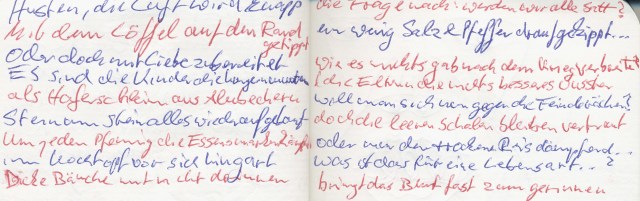 Husten, die Luft wird knapp
Mit dem Löffel auf den Rand
getippt
Oder doch mit Liebe zubereitet
ES sind die Kinder die
als Haferschleim aus Alubechern
Stein um Stein alles wieder aufgebaut
Um jeden Pfennig die Essensmarke
im Kochtopf vor sich hingart
Dicke Bäuche mit nicht da innen
die Frage nach: werden wir alle satt?
ein wenig Salz & Pfeffer drauf gekippt...
wie es nichts gab nach dem Krieg
die Eltern die nichts besseres
will man sich nen gegen die Feinde
doch die leeren Schalen bleiben vertraut
oder nur der trockene Reis dampfend...
was ist das für eine Lebensart...?
bringt das Blut fast zum gerinnen